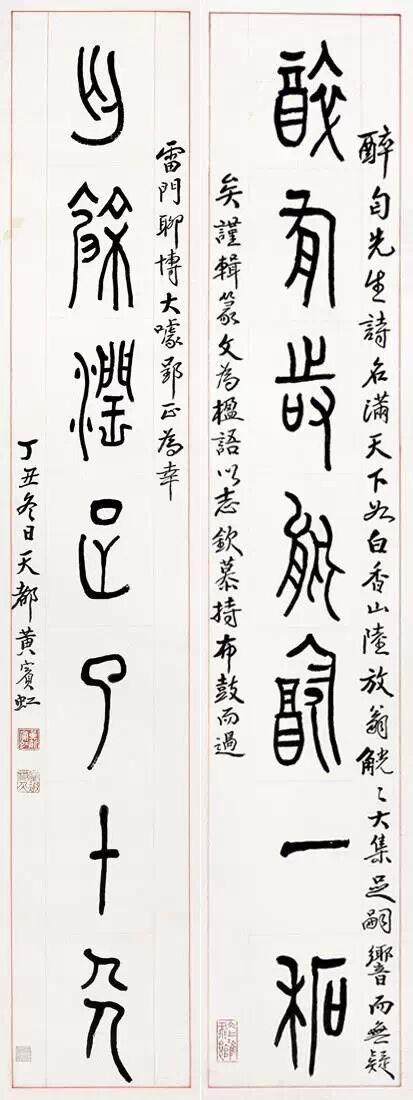 有能一
潤足了十人
醉匋先生詩名滿天下如白香山陸放翁觥〻大集足嗣響而無疑
矣謹輯篆文為楹語以志欽慕持布鼓而過
雷門聊博大噱郢正為幸
丁丑冬日天都黃賓虹